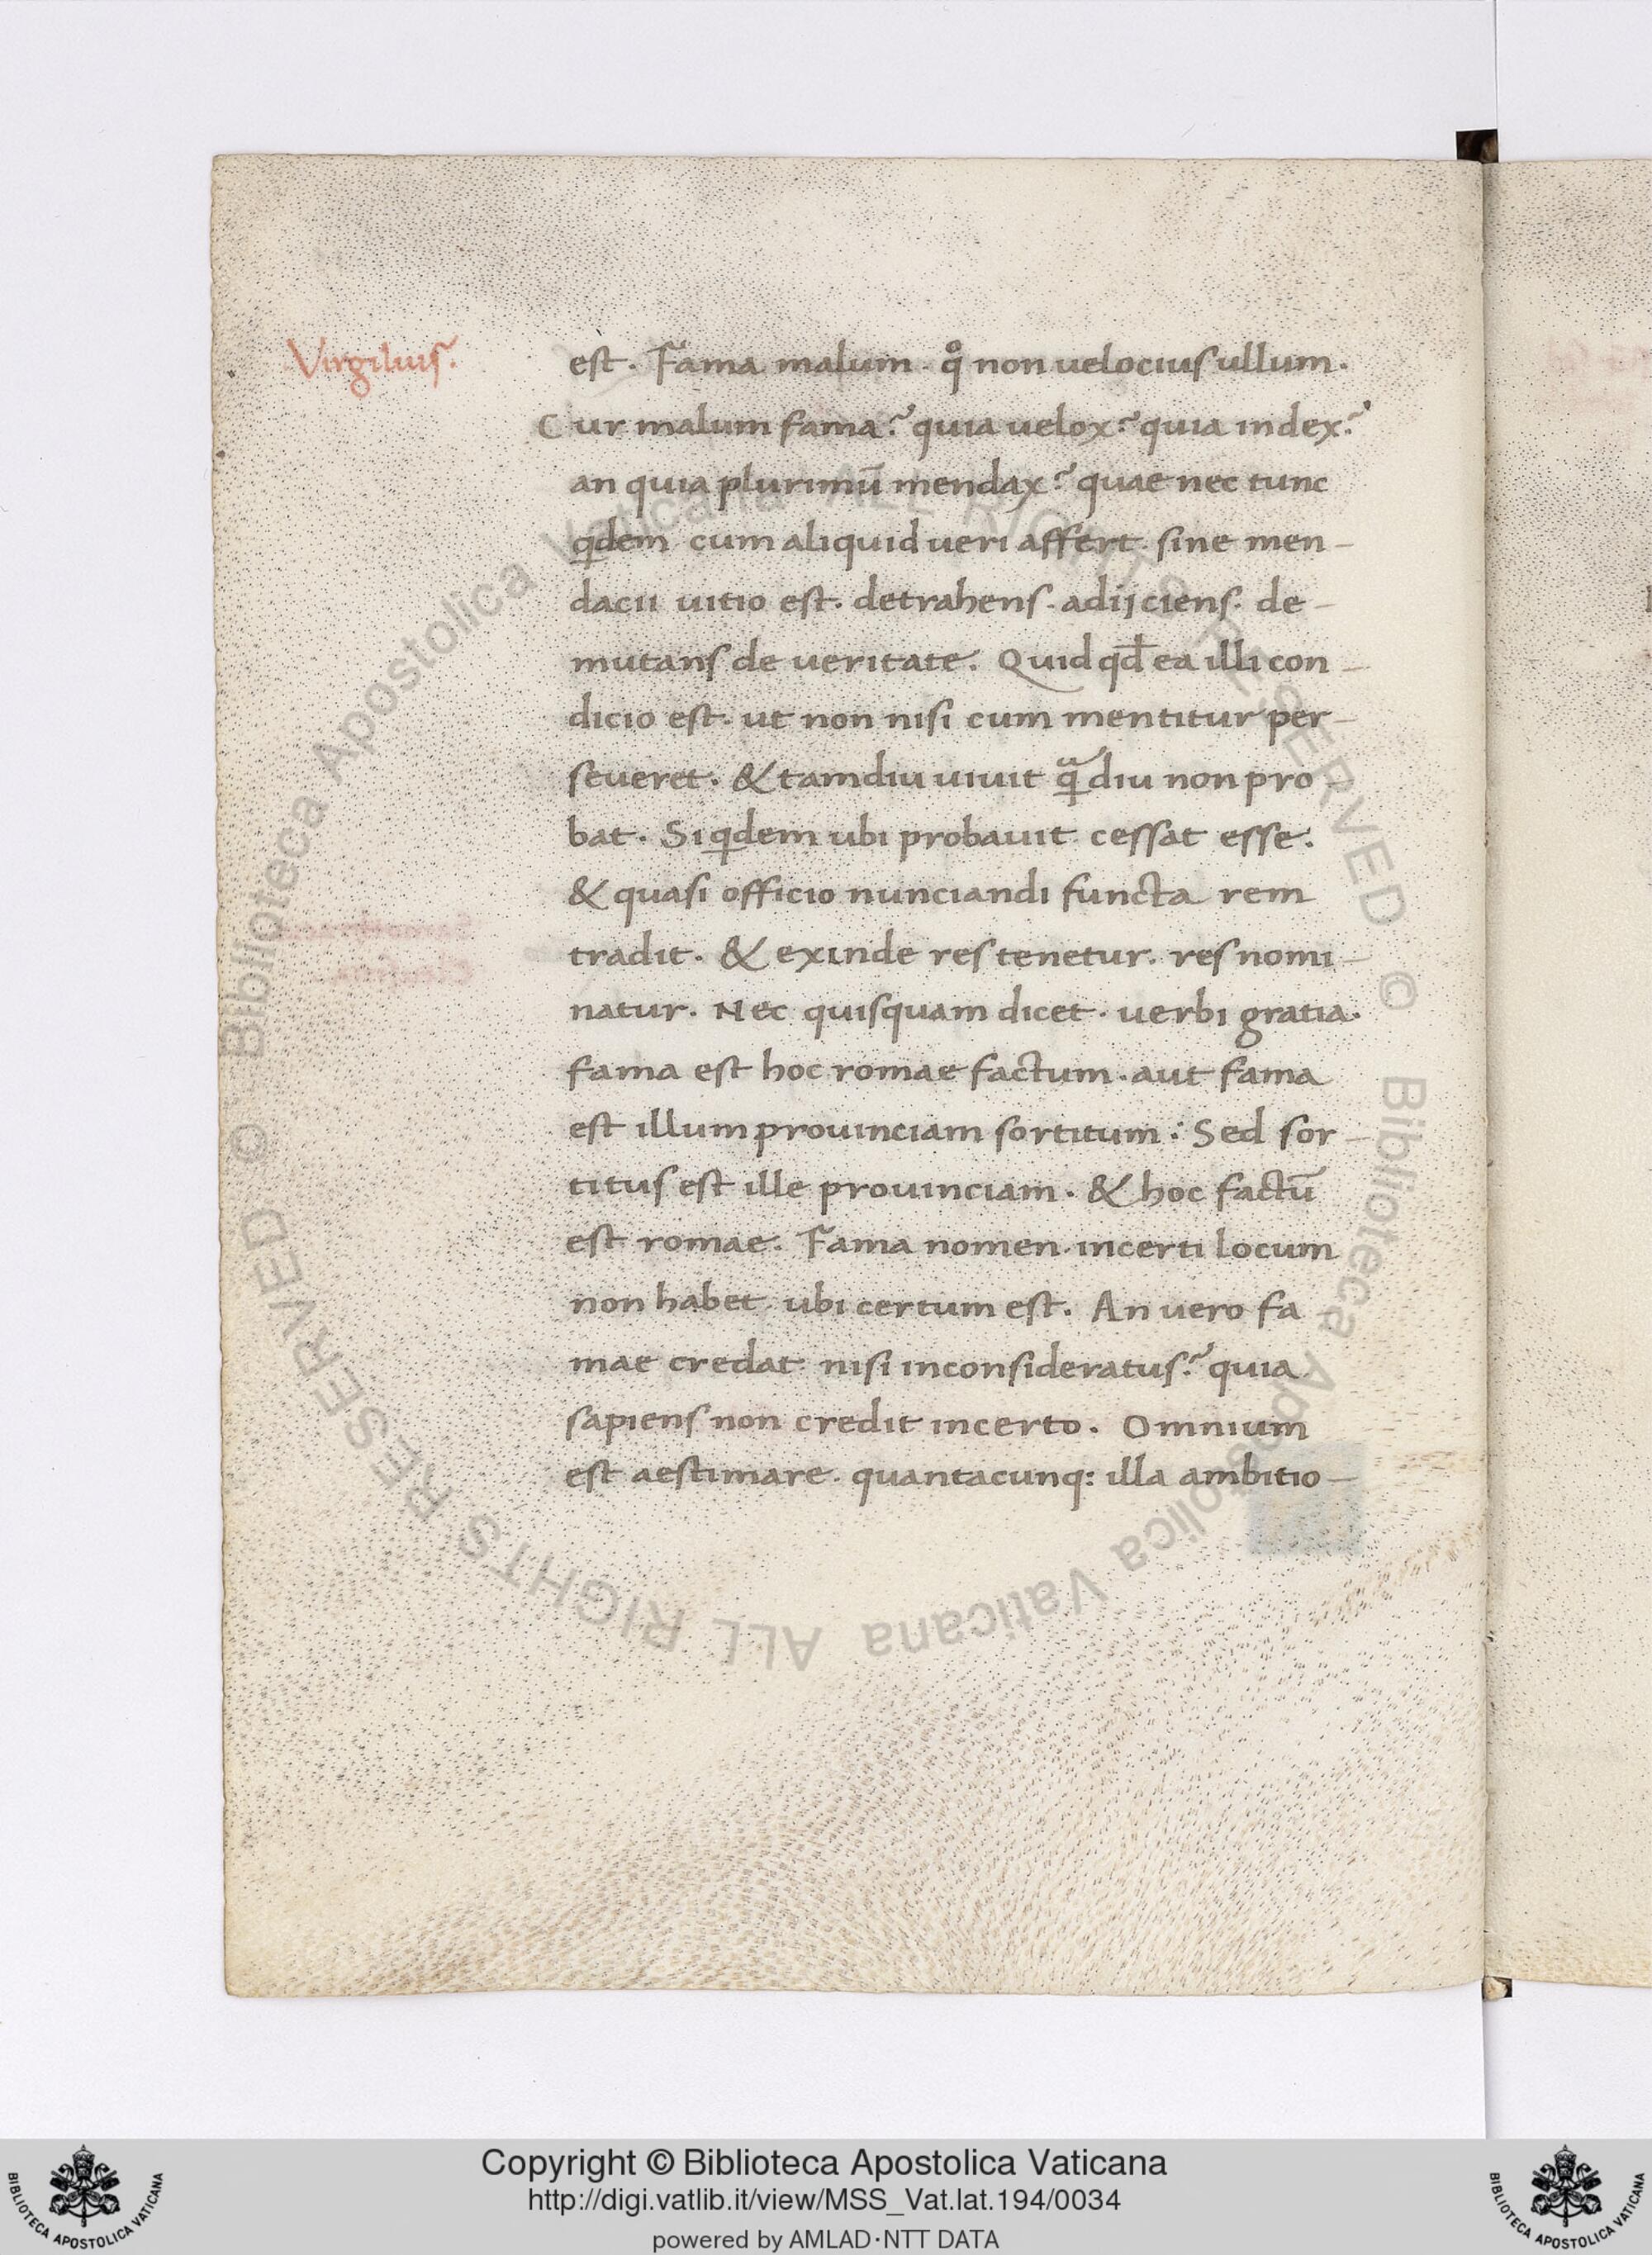 Virgilius.
est. Fama malum. qͦ non velocius ullum.
Cur malum fama? quia velox? quia index?
an quia plurimū mendax? quae nec tunc
qdem cum aliquid veri affert. sine men-
dacii uitio est. detrahens. adijciens. de-
mutans de veritate. Quid qd̄ ea illi con-
dicio est. ut non nisi cum mentitur per-
seueret. & tamdiu uiuit qᷓdiu non pro
bat. Siqdem ubi probauit cessat esse.
& quasi officio nunciandi functa rem
tradit. & exinde res tenetur. res nomi-
natur. Nec quisquam dicet. uerbi gratia.
fama est hoc romae factum. aut fama
est illum prouinciam sortitum: Sed sor-
titus est ille prouinciam. & hoc factū
est romae. Fama nomen incerti locum
non habet. ubi certum est. An uero fa
mae credat nisi inconsideratus? quia
sapiens non credit incerto. Omnium
est aestimare. quantacunq: illa ambitio-
Biblioteca Apostolica Vaticana ALL RIGHTS RESERVED ©
Biblioteca Apostolica Vaticana ALL RIGHTS RESERVED ©
Copyright © Biblioteca Apostolica Vaticana
http://digi.vatlib.it/view/MSS_Vat.lat.194/0034
powered by AMLAD·NTT DATA
BIBLIOTECA APOSTOLICA VATICANA
BIBLIOTECA APOSTOLICA VATICANA